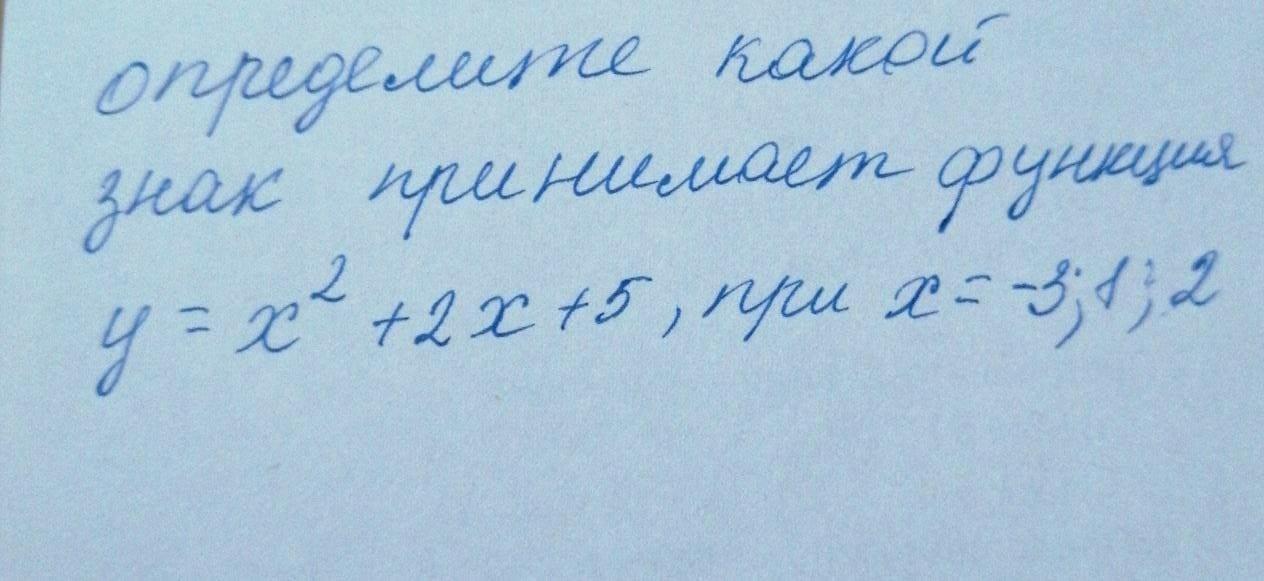 определите какой
знак принимает функция
y = x² + 2x + 5, при x = -3; 1; 2